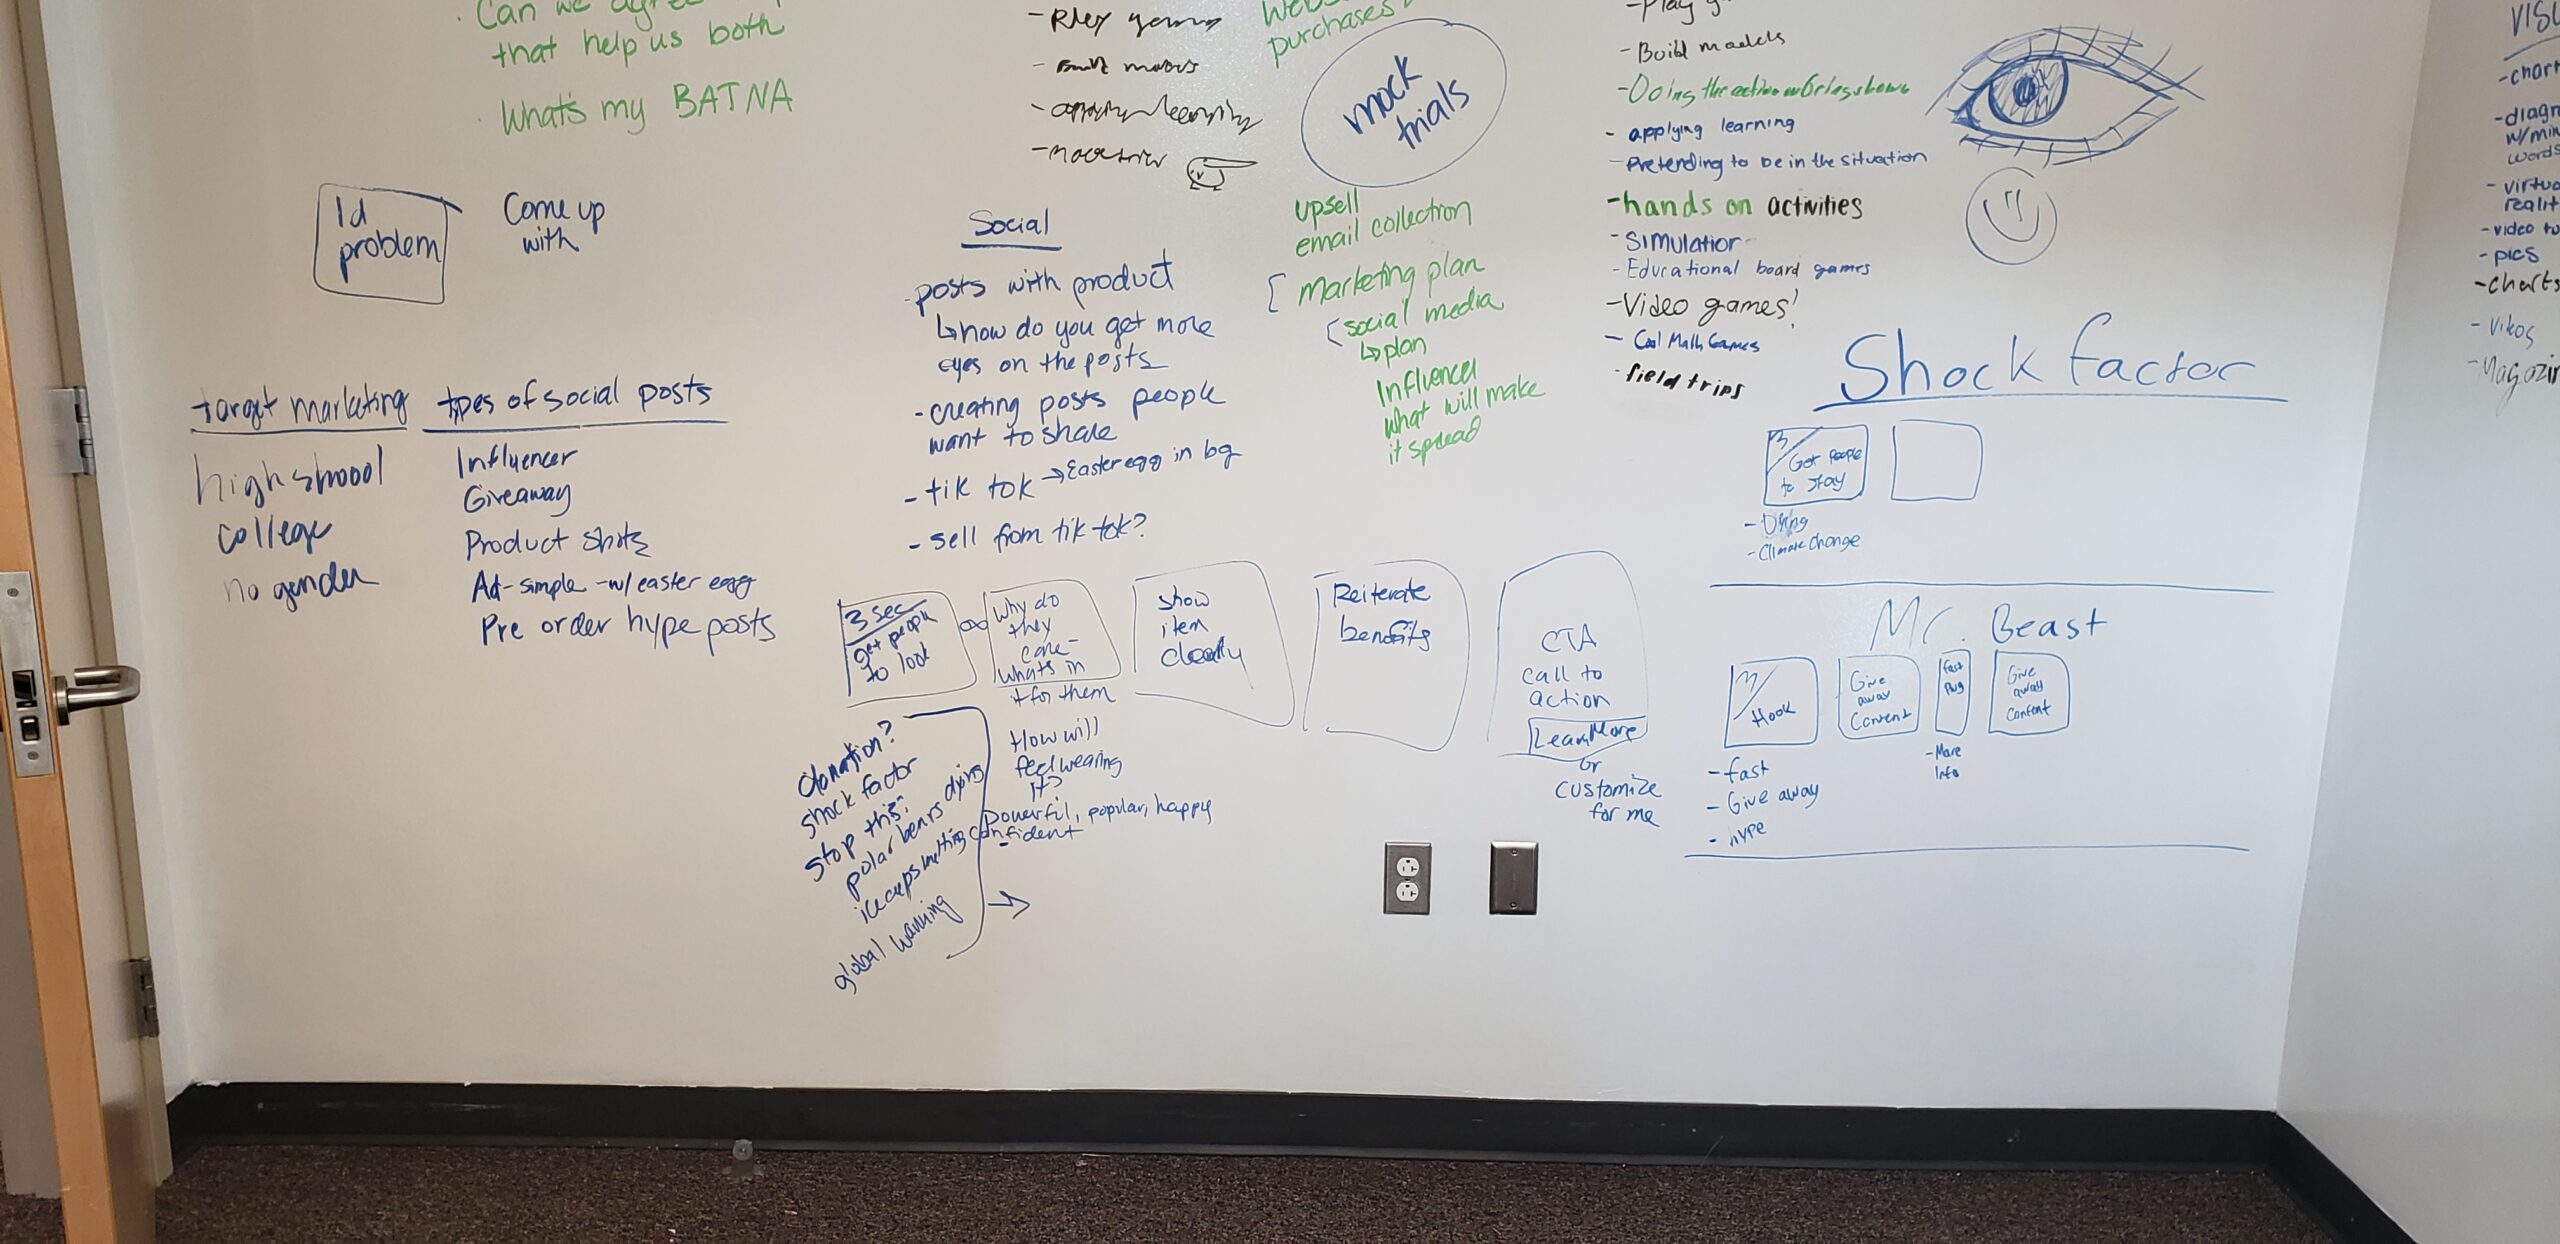 Can we agree
that help us both
What's my BATNA
Id
problem
Come up
with
target marketing
high shoool
college
no gender
types of social posts
Influencer
Giveaway
Product shots
Ad-simple -w/easter egg
Pre order hype posts
- Play games
- Build models
- applying learning
Social
- posts with product
↳ how do you get more
eyes on the posts
- creating posts people
want to share
- tik tok → Easter egg in bg
- sell from tik tok?
purchases
mock
trials
upsell
email collection
[ marketing plan
( social media
↳ plan
Influencer
what will make
it spread
3 sec
get people
to look
Why do
they
care-
whats in
it for them
show
item
clearly
Reiterate
benefits
CTA
call to
action
Learn More
or
customize
for me
donation?
shock factor
stop this?
polar bears dying
icecaps melting
global warming
How will
feel wearing
it?
Powerful, popular, happy
confident
- Play
- Build models
- Doing the action
- applying learning
- Pretending to be in the situation
- hands on activities
- Simulation
- Educational board games
- Video games!
- Cool Math Games
- field trips
Shock factor
3
Get People
to stay
- Dying
- Climate change
Mr. Beast
3
Hook
- fast
- Give away
- hype
Give
away
Content
fast
plug
- More
Info
Give
away
Content
- chart
w/min
words
- virtua
realit
- video
- pics
- charts